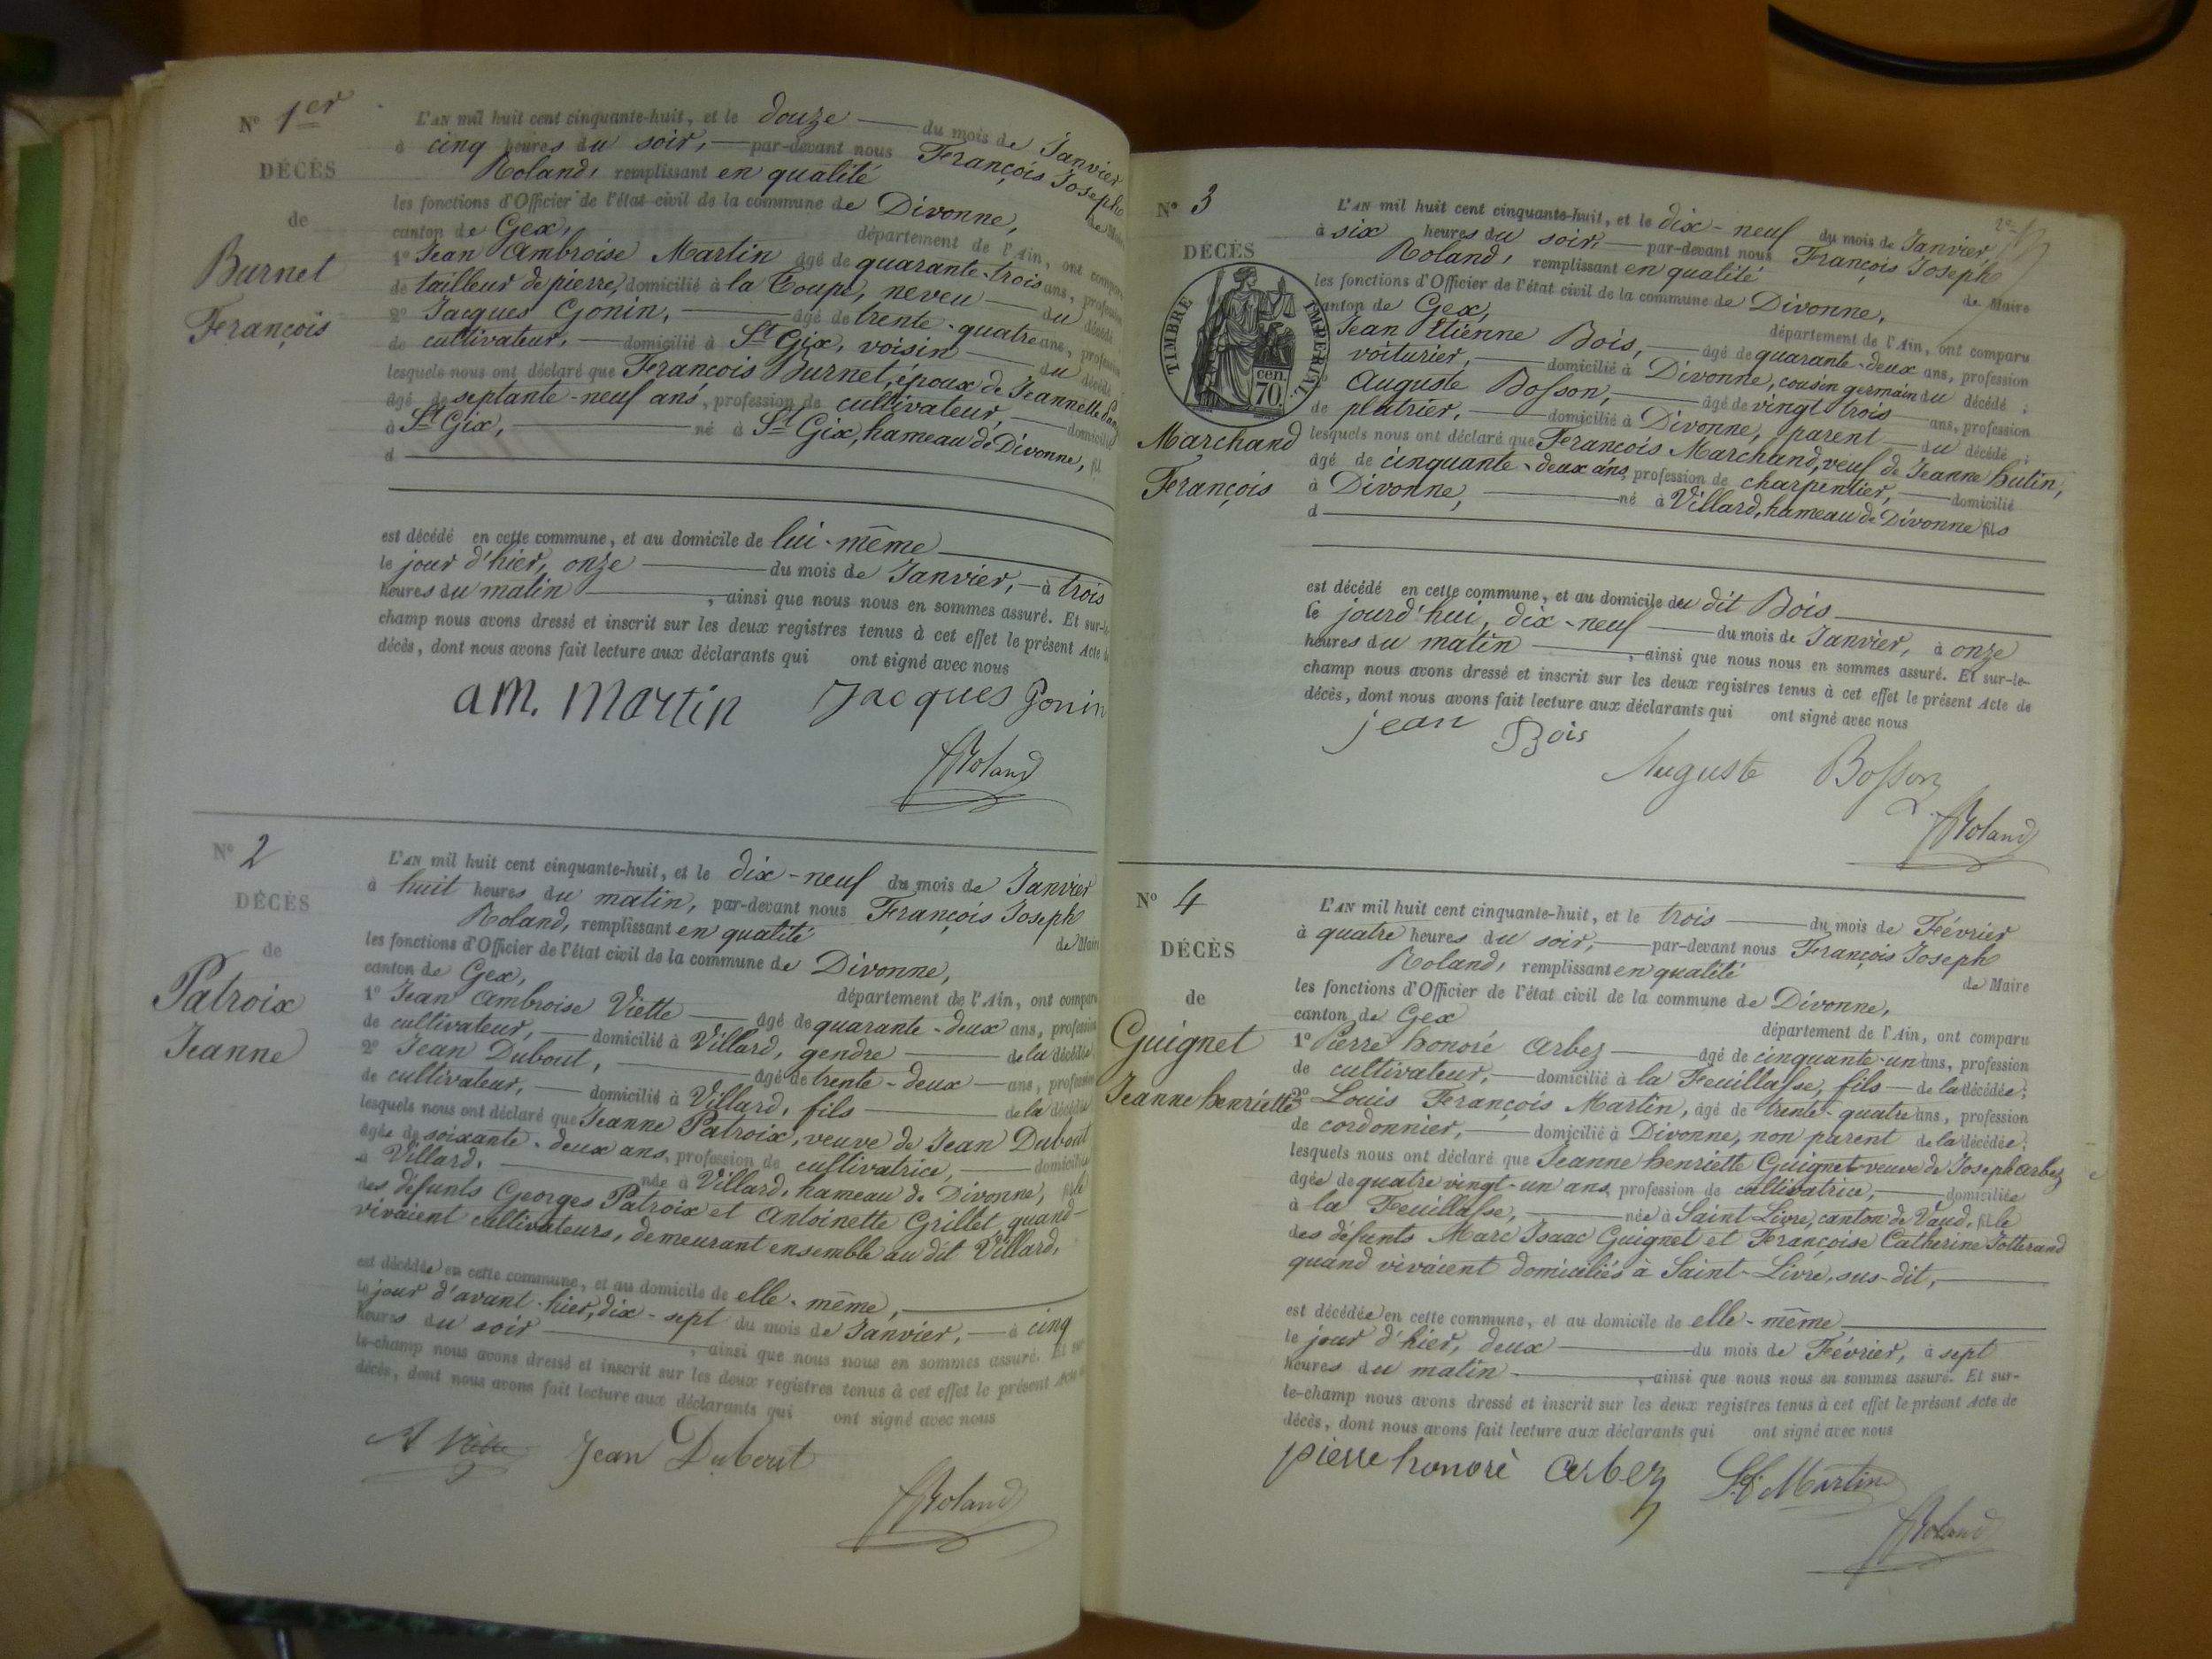 N° 1er
DÉCÈS
de
Burnet
François
L'AN mil huit cent cinquante-huit, et le douze du mois de Janvier
à cinq heures du soir, par-devant nous François Joseph
Roland, remplissant en qualité de Maire
les fonctions d'Officier de l'état civil de la commune de Divonne,
canton de Gex, département de l'Ain, ont comparu
1° Jean Ambroise Martin âgé de quarante-trois ans, profession
de tailleur de pierre, domicilié à la Coupe, neveu du décédé
2° Jacques Gonin, âgé de trente-quatre ans, profession
de cultivateur, domicilié à St Gix, voisin du décédé
lesquels nous ont déclaré que François Burnet, époux de Jeannette
âgé de septante-neuf ans, profession de cultivateur, domicilié
à St Gix, né à St Gix, hameau de Divonne, fil
d
est décédé en cette commune, et au domicile de lui-même
le jour d'hier, onze du mois de Janvier, à trois
heures du matin, ainsi que nous nous en sommes assuré. Et sur-le
champ nous avons dressé et inscrit sur les deux registres tenus à cet effet le présent Acte de
décès, dont nous avons fait lecture aux déclarants qui ont signé avec nous
am. Martin Jacques Gonin
Roland
N° 2
DÉCÈS
de
Patroix
Jeanne
L'AN mil huit cent cinquante-huit, et le dix-neuf du mois de Janvier
à huit heures du matin, par-devant nous François Joseph
Roland, remplissant en qualité de Maire
les fonctions d'Officier de l'état civil de la commune de Divonne,
canton de Gex, département de l'Ain, ont comparu
1° Jean Ambroise Viette âgé de quarante-deux ans, profession
de cultivateur, domicilié à Villard, gendre de la décédée
2° Jean Dubout, âgé de trente-deux ans, profession
de cultivateur, domicilié à Villard, fils de la décédée
lesquels nous ont déclaré que Jeanne Patroix, veuve de Jean Dubout
âgée de soixante-deux ans, profession de cultivatrice, domiciliée
à Villard, née à Villard, hameau de Divonne, fille
des défunts Georges Patroix et Antoinette Grillet, quand
vivaient cultivateurs, demeurant ensemble au dit Villard,
est décédée en cette commune, et au domicile de elle-même,
le jour d'avant-hier, dix-sept du mois de Janvier, à cinq
heures du soir, ainsi que nous nous en sommes assuré. Et sur
le-champ nous avons dressé et inscrit sur les deux registres tenus à cet effet le présent Acte de
décès, dont nous avons fait lecture aux déclarants qui ont signé avec nous
Jean Dubout
Roland
N° 3
DÉCÈS
TIMBRE IMPÉRIAL
70 cen.
Marchand
François
L'AN mil huit cent cinquante-huit, et le dix-neuf du mois de Janvier,
à six heures du soir, par-devant nous François Joseph
Roland, remplissant en qualité de Maire
les fonctions d'Officier de l'état civil de la commune de Divonne,
canton de Gex, département de l'Ain, ont comparu
Jean Etienne Bois, âgé de quarante-deux ans, profession
voiturier, domicilié à Divonne, cousin germain du décédé ;
Auguste Bosson, âgé de vingt trois ans, profession
de platrier, domicilié à Divonne, parent du décédé ;
lesquels nous ont déclaré que François Marchand, veuf de Jeanne hutin,
âgé de cinquante-deux ans, profession de charpentier, domicilié
à Divonne, né à Villard, hameau de Divonne fils
d
est décédé en cette commune, et au domicile du dit Bois
le jourd'hui, dix-neuf du mois de Janvier, à onze
heures du matin, ainsi que nous nous en sommes assuré. Et sur-le-
champ nous avons dressé et inscrit sur les deux registres tenus à cet effet le présent Acte de
décès, dont nous avons fait lecture aux déclarants qui ont signé avec nous
jean Bois
Auguste Bosson
Roland
N° 4
DÉCÈS
de
Guignet
Jeanne henriette
L'AN mil huit cent cinquante-huit, et le trois du mois de Février
à quatre heures du soir, par-devant nous François Joseph
Roland, remplissant en qualité de Maire
les fonctions d'Officier de l'état civil de la commune de Divonne,
canton de Gex département de l'Ain, ont comparu
1° Pierre honoré Arbez âgé de cinquante-un ans, profession
de cultivateur, domicilié à la Feuillasse, fils de la décédée ;
2° Louis François Martin, âgé de trente-quatre ans, profession
de cordonnier, domicilié à Divonne, non parent de la décédée ;
lesquels nous ont déclaré que Jeanne henriette Guignet veuve de Joseph Arbez
âgée de quatre vingt-un ans, profession de cultivatrice, domiciliée
à la Feuillasse, née à Saint-Livre, canton de Vaud, fille
des défunts Marc Isaac Guignet et Françoise Catherine Jotterand
quand vivaient domiciliés à Saint-Livre, sus-dit,
est décédée en cette commune, et au domicile de elle-même
le jour d'hier, deux du mois de Février, à sept
heures du matin, ainsi que nous nous en sommes assuré. Et sur-
le-champ nous avons dressé et inscrit sur les deux registres tenus à cet effet le présent Acte de
décès, dont nous avons fait lecture aux déclarants qui ont signé avec nous
pierre honoré arbez L.f. Martin
Roland